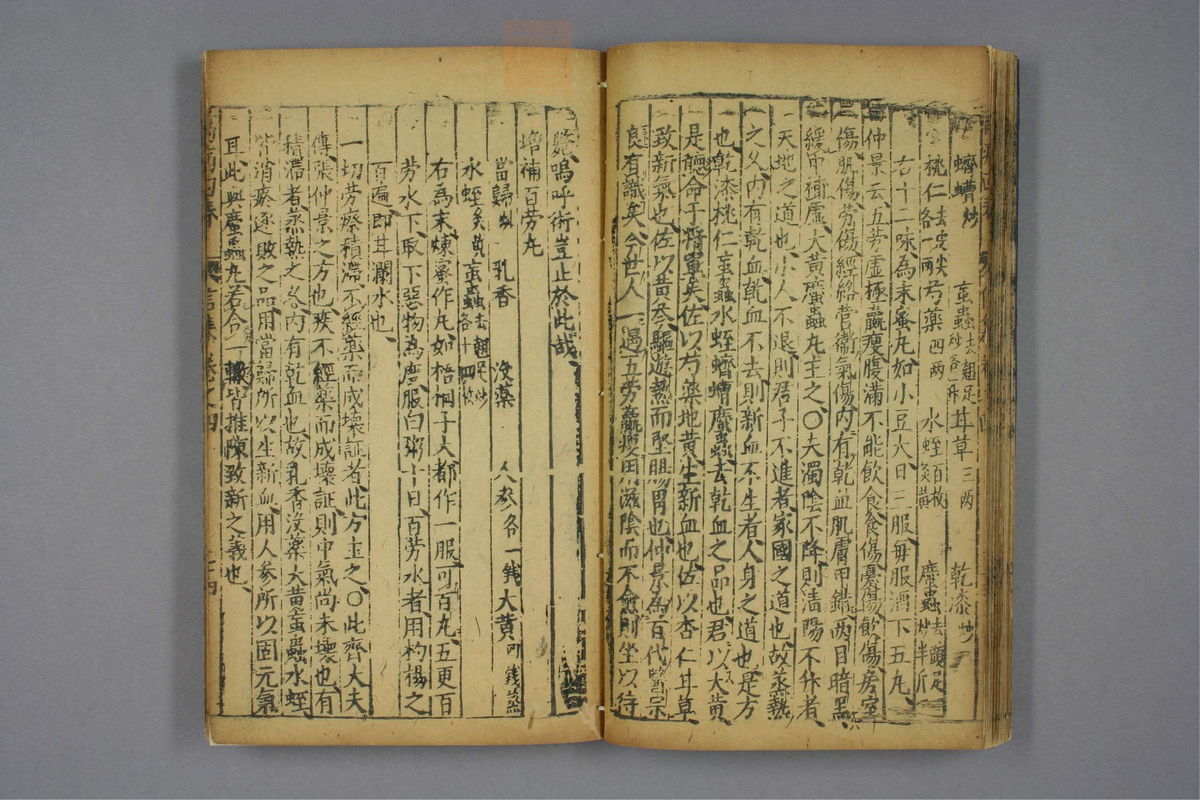 蠐螬炒 䖟蟲去翅足炒各一升 甘草三两 乾漆炒
桃仁去皮尖各一两 芍藥四两 水蛭百枚炙黃 䗪蟲去頭足炒半斤
右十二味為末蜜丸如小豆大日三服每服酒下五丸
仲景云五劳虚極羸瘦腹滿不能飲食食傷憂傷飲傷房室
傷肌傷劳傷經絡营衛氣傷内有乾血肌膚甲錯两目暗黑
緩中補虚大黃䗪蟲丸主之〇夫濁陰不降則清陽不升者
天地之道也小人不退則君子不進者家國之道也故蒸熱
之久内有乾血乾血不去則新血不生者人身之道也是方
也乾漆桃仁䖟蟲水蛭蠐螬䗪蟲去乾血之品也君以大黃
是聽命于將軍矣佐以芍藥地黃生新血也佐以杏仁甘草
致新氣也佐以黃芩驅遊熱而堅腸胃也仲景為百代醫宗
良有識矣今世人一遇五劳羸瘦用滋陰而不愈則坐以待
斃嗚呼術豈止於此哉
增補百劳丸
當歸炒 乳香 没藥 人参各一錢 大黃四錢蒸
水蛭炙黃 䖟蟲去翅足炒各十四枚
右為末煉蜜作丸如梧桐子大都作一服可百丸五更百
劳水下取下惡物為度服白粥十日百劳水者用杓揚之
百遍即甘瀾水也
一切劳瘵積滯不經藥而成壊証者此方主之〇此齊大夫
傳張仲景之方也疾不經藥而成壊証則中氣尚未壊也有
積滯者蒸熱之久内有乾血也故乳香没藥大黃䖟蟲水蛭
皆消瘀逐敗之品用當歸所以生新血用人参所以固元氣
耳此與䗪蟲丸若合一轍皆推陳致新之義也